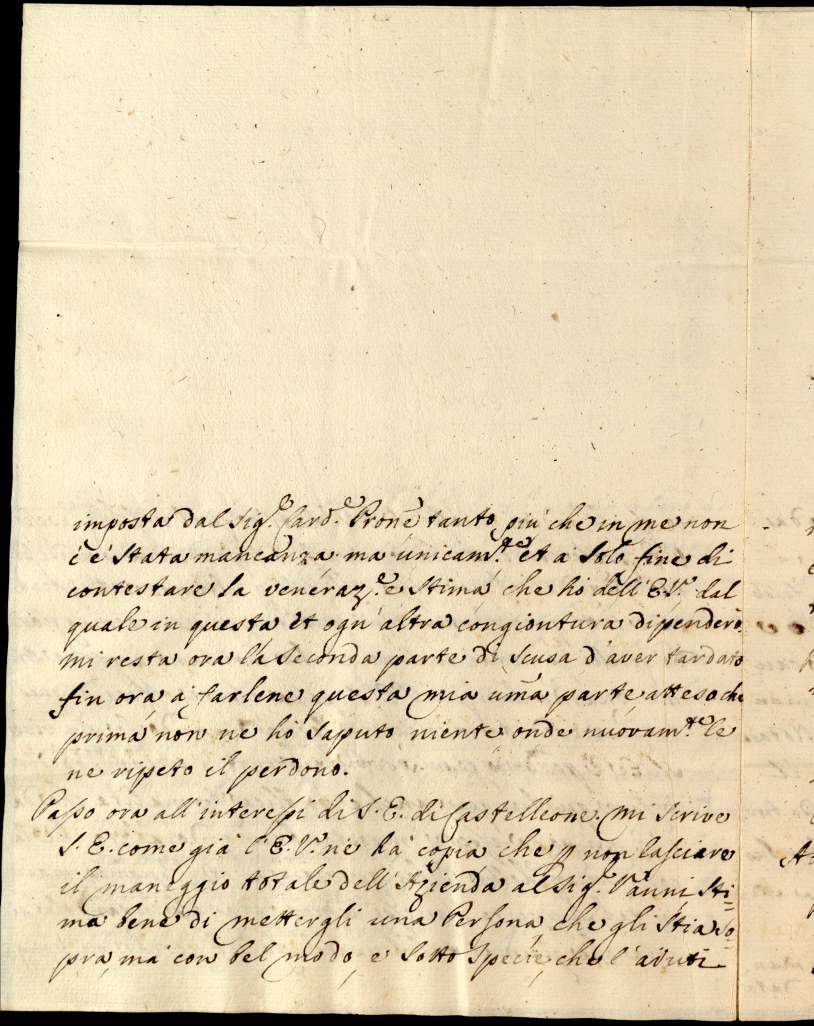 imposta dal Sig.e Card.e Prone tanto più che in me non
c'è stata mancanza ma unicam.te et a solo fine di
contestare la veneraz.e e stima che ho dell'E.V. dal
quale in questa et ogn'altra congiontura dipenderò.
mi resta ora la seconda parte di scusa d'aver tardato
fin ora a farlene questa mia uma parte atteso che
prima non ne ho saputo niente onde nuovam.te le
ne ripeto il perdono.
Passo ora all'interessi di S.E. di Castelleone. mi scrive
S.E. come già l'E.V. ne ha copia che p non lasciare
il maneggio totale dell'Azienda al Sig.e Vanni, sti=
ma bene di mettergli una Persona, che gli stia so=
pra, ma con bel modo, e sotto specie, che l'aiuti